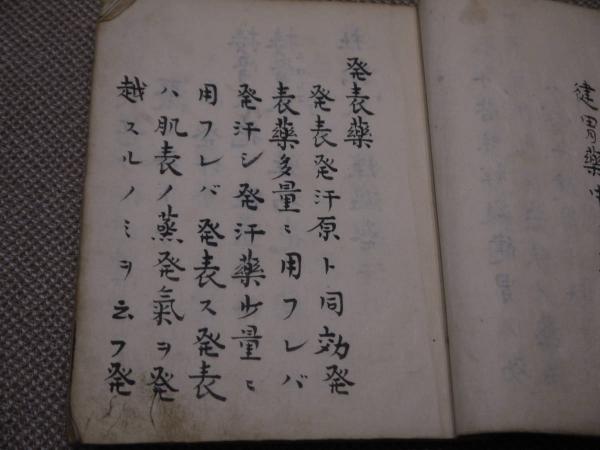 健胃薬
発表薬
発表発汗原ト同効発
表薬多量ニ用フレバ
発汗シ発汗薬少量ニ
用フレバ発表ス発表
ハ肌表ノ蒸発氣ヲ発
越スルノミヲ云フ発